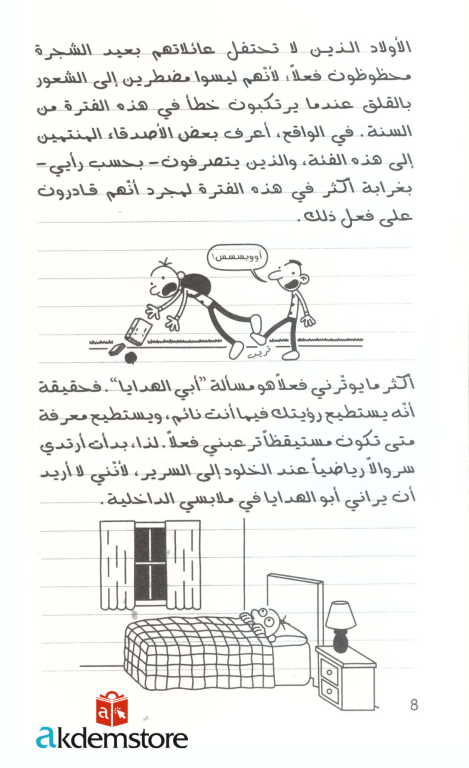 الأولاد الذين لا تحتفل عائلاتهم بعيد الشجرة
محظوظون فعلاً، لأنّهم ليسوا مضطرين إلى الشعور
بالقلق عندما يرتكبون خطأ في هذه الفترة من
السنة. في الواقع، أعرف بعض الأصدقاء المنتمين
إلى هذه الفئة، والذين يتصرفون- بحسب رأيي-
بغرابة أكثر في هذه الفترة لمجرد أنّهم قادرون
على فعل ذلك.
أووبسسس!
أكثر ما يوتّرني فعلاً هو مسألة "أبي الهدايا". فحقيقة
أنّه يستطيع رؤيتك فيما أنت نائم، ويستطيع معرفة
متى تكون مستيقظاً ترعبني فعلاً. لذا، بدأت أرتدي
سروالاً رياضياً عند الخلود إلى السرير، لأنّني لا أريد
أن يراني أبو الهدايا في ملابسي الداخلية.
8
akdemstore